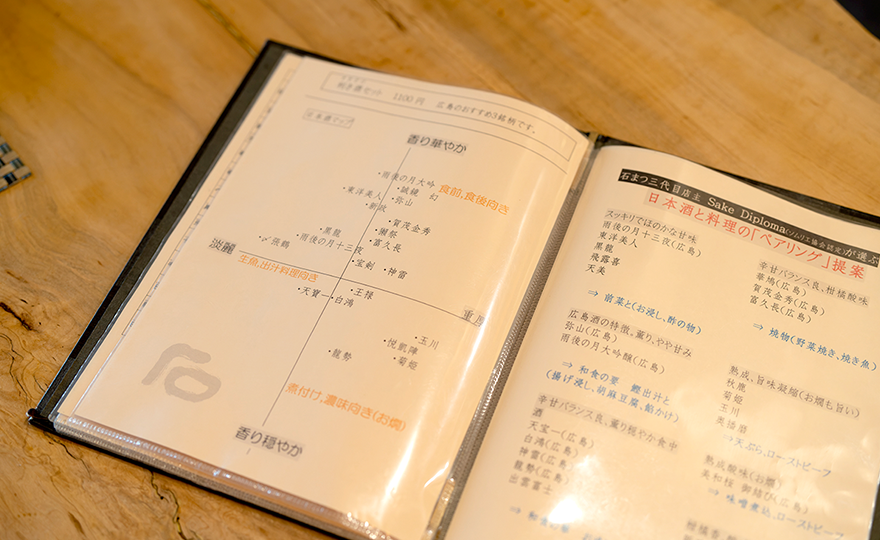 利き酒セット 1100円 広島のおすすめ3銘柄です。
日本酒マップ
香り華やか
・雨後の月大吟
・誠鏡 幻
・東洋美人
・弥山
・新政
食前,食後向き
・賀茂金秀
・黒龍
・獺祭
・雨後の月十三夜
・富久長
淡麗
張鶴
・宝剣
・神雷
生魚,出汁料理向き
・天寶一
・王禄
・白鴻
重厚
・玉川
・悦凱陣
・龍勢
・菊姫
煮付け,濃味向き(お燗)
香り穏やか
石まつ三代目店主 Sake Diploma(ソムリエ協会認定)が選ぶ
日本酒と料理の「ペアリング」提案
スッキリでほのかな甘味
雨後の月十三夜(広島)
東洋美人
黒龍
飛露喜
天美
⇒ 前菜と(お浸し、酢の物)
広島酒の特徴。薫り、やや甘み
弥山(広島)
雨後の月大吟醸(広島)
⇒ 和食の要 鰹出汁と
(揚げ浸し、胡麻豆腐、餡かけ)
辛甘バランス良、薫り穏やか食中
酒
天宝一(広島)
白鴻(広島)
神雷(広島)
龍勢(広島)
出雲富士
辛甘バランス良、柑橘酸味
華鳩(広島)
賀茂金秀(広島)
富久長(広島)
⇒ 焼物(野菜焼き、焼き魚)
熟成、旨味凝縮(お燗も旨い)
秋鹿
菊姫
玉川
奥播磨
⇒天ぷら、ローストビーフ
熟成酸味(お燗)
美和桜 御結び(広島)
⇒ 味噌煮込、ローストビーフ
柑橘香、